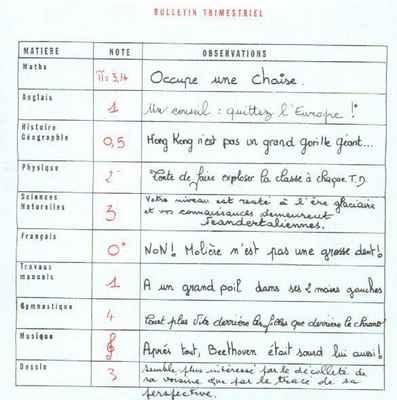 BULLETIN TRIMESTRIEL
MATIERE NOTE OBSERVATIONS
Maths π=3,14 Occupe une chaise.
Anglais 1 Un conseil : quittez l'Europe !
Histoire
Géographie 0,5 Hong Kong n'est pas un grand gorille géant...
Physique 2 Tente de faire exploser la classe à chaque T.D.
Sciences
Naturelles 3 Votre niveau est resté à l'ère glaciaire
et vos connaissances demeurent
neandertaliennes.
Français 0 NON! Molière n'est pas une grosse dent!
Travaux
manuels 1 A un grand poil dans ses 2 mains gauches
Gymnastique 4 Court plus vite derrière les filles que derrière le chrono!
Musique Après tout, Beethoven était sourd lui aussi!
Dessin 3 Semble plus intéressé par le décolleté de
sa voisine que par le tracé de sa
perspective.